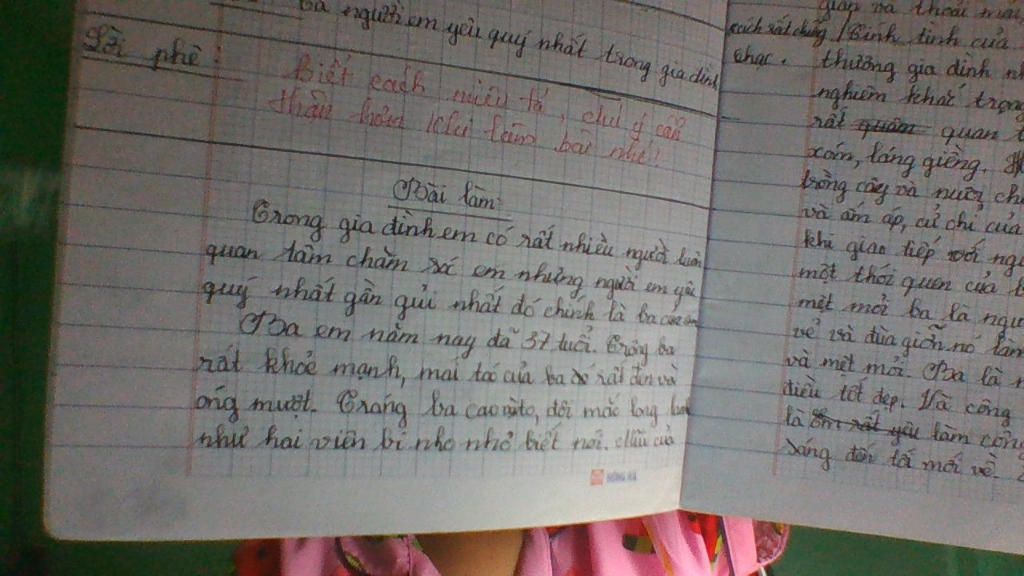 ba người em yêu quý nhất trong gia đình
Lời phê:
Biết cách miêu tả, chú ý cẩn
thận hơn khi làm bài nhé!
Bài làm
Trong gia đình em có rất nhiều người luôn
quan tâm chăm só em nhưng người em yêu
quý nhất gần gủi nhất đó chính là ba của em
Ba em năm nay đã 37 tuổi. Trông ba
rất khoẻ mạnh, mái tóc của ba rất đen và
óng mượt. Tráng ba cao, đôi mắc long lanh
như hai viên bi nho nhỏ biết nói. Mũi của
HỒNG HÀ
giản và thoải mái
cách rất chững Tính tình của
chạc. thường gia đình
nghiêm khắc trọng
rất quan
xóm, láng giềng.
trồng cây và nuôi
và ấm áp, cử chỉ của
khi giao tiếp với
một thói quen của
mệt mỏi ba là
vẻ và đùa giỡn nó làm
và mệt mỏi. Ba là
điều tốt đẹp. Và công
là ốm rất yêu làm công
sáng đến tối mới về.